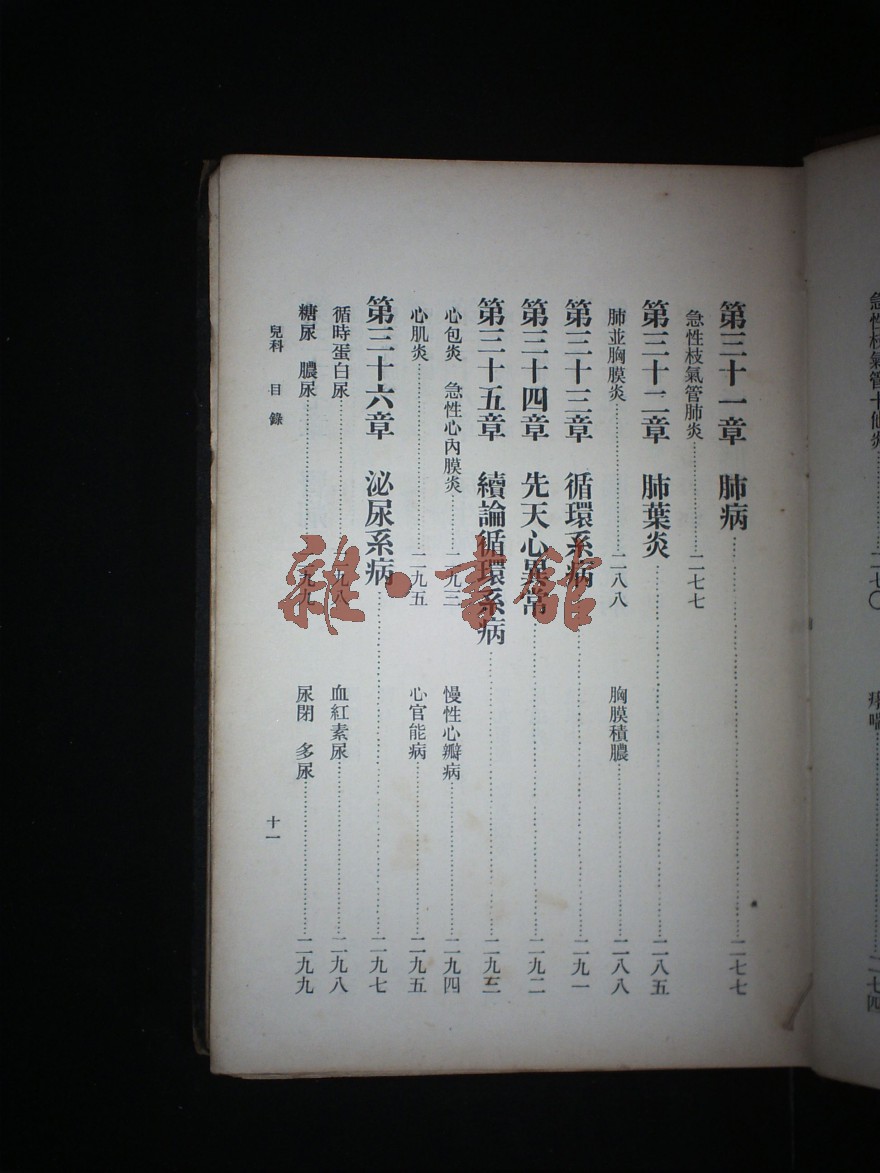 急性枝氣管卡他炎……二七〇 痙喘……二七四
第三十一章 肺病……二七七
急性枝氣管肺炎……二七七
第三十二章 肺葉炎……二八五
肺並胸膜炎……二八八 胸膜積膿……二八八
第三十三章 循環系病……二九一
第三十四章 先天心異常……二九二
第三十五章 續論循環系病……二九三
心包炎 急性心內膜炎……二九三 慢性心瓣病……二九四
心肌炎……二九五 心官能病……二九五
第三十六章 泌尿系病……二九七
循時蛋白尿……二九八 血紅素尿……二九八
糖尿 膿尿……二九九 尿閉 多尿……二九九
兒科 目錄 十一
雜·書館